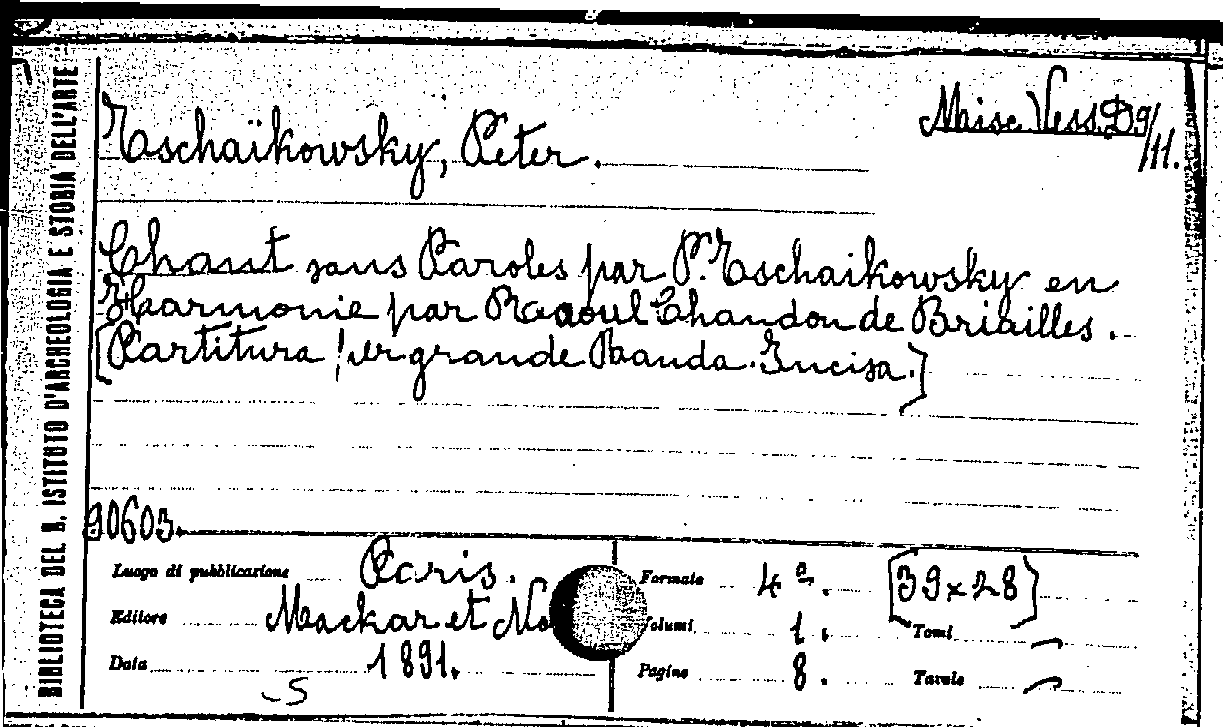 BIBLIOTECA DEL R. ISTITUTO D'ARCHEOLOGIA E STORIA DELL'ARTE
Misc. Vess. D9/11.
Tschaïkowsky, Peter.
Chant sans Paroles par P. Tschaikowsky en
Harmonie par Raoul Chandon de Briailles.
[Partitura per grande Banda. Incisa.]
90603.
Luogo di pubblicazione Paris. Formato 4º. [39x28]
Editore Mackar et No Volumi 1. Tomi —
Data 1891. Pagine 8. Tavole —